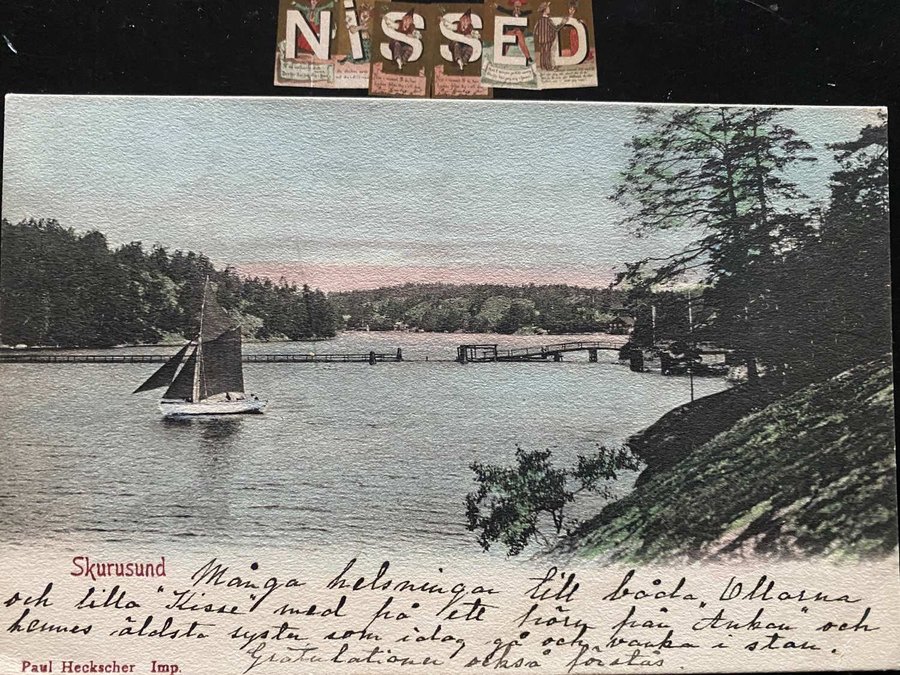 NiSSED
Skurusund
Många helsningar till båda Ollarna
och lilla "Kisse" med på ett hörn från "Ankan" och
hennes äldsta syster som idag gå och vanka i stan.
Gratulationer också förstås.
Paul Heckscher Imp.